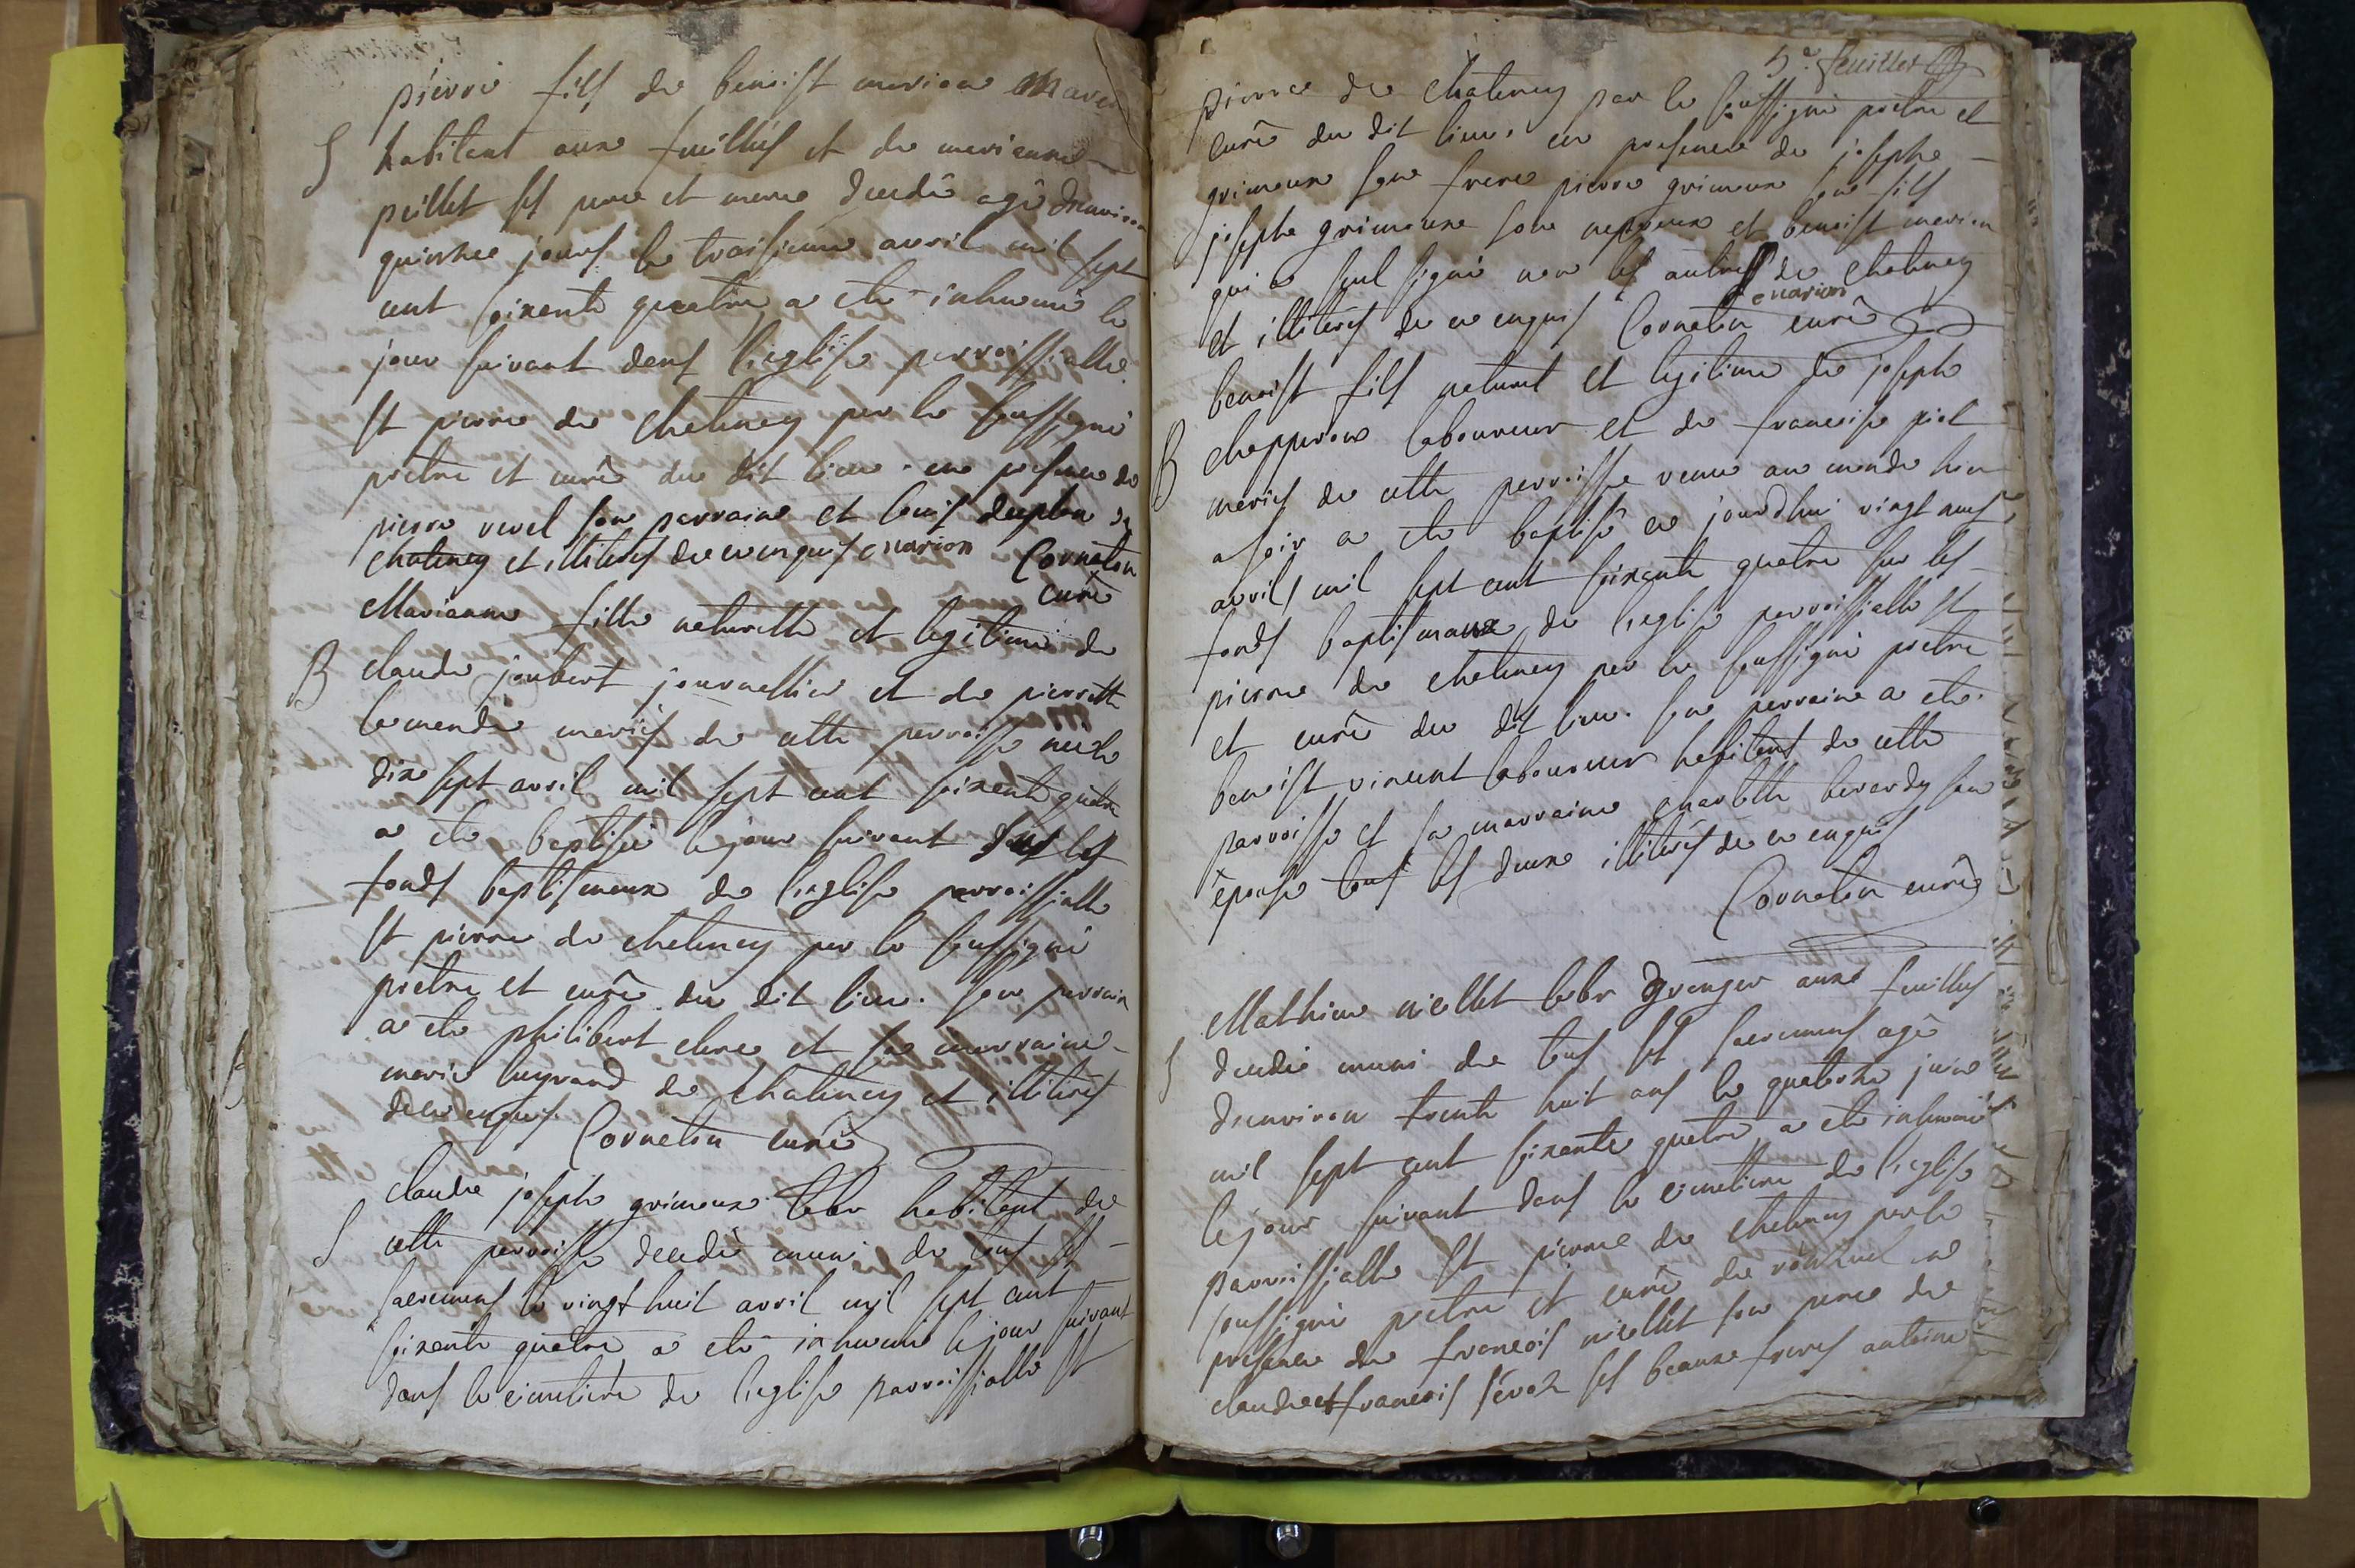 pierre fils de benoist marion
S habitant aux feuilleés et de marianne
peillet ses pere et mere decedé agé d'environ
quinze jours le troisieme avril mil sept
cent soixente quatre a ete inhumé le
jour suivant dans l'eglise parroissialle
St pierre de chateney par le soussigné
prètre et curê du dit lieu. en presence de
pierre revel son parraine et louis
chateney et illiterés de ce enquis marion Corneton
curé
Marianne fille naturelle et legitime de
B claude joubert journallier et de pierrette
mariés de cette parroisse née le
dixe sept avril mil sept cent soixente quatre
a ete baptisée le jour suivant sur les
fonds baptismaux de l'eglise parroissialle
St pierre de chateney par le soussigné
prètre et curê du dit lieu. son parrain
a ete philibert clerc et sa marraine
marie de chateney et illiterés
de ce enquis. Corneton curê
Claude josephe grimoux labr habitant de
S cette parroisse decedé muni de tous les
sacremens le vingt huit avril mil sept cent
soixente quatre a eté inhumé le jour suivant
dans le cimetiere de l'eglise parroissialle St
5e. feuillet
pierre de chateney par le soussigné prètre et
curê du dit lieu. en presence de josephe
grimoux son frere pierre grimoux son fils
josephe grimoux son nepveux et benoist marion
qui a seul signé non les autres de chateney
et illiterés de ce enquis marion Corneton curê
benoist fils naturel et legitime de josephe
B chapperon laboureur et de francoise piot
mariés de cette parroisse venu au monde hier
a soir a ete baptisê ce jourdhui vingt neuf
avril mil sept cent soixante quatre sur les
fonds baptismaux de l'eglise parroissialle St
pierre de chateney par le soussigné prètre
et curê du dit lieu. son parraine a ete
benoist vincent laboureur habitant de cette
parroisse et sa marraine son
épouse tous les deuxe illiterés de ce enquis
Corneton curê
Mathieu niellet labr granger auxe feuilleés
S decedé muni de tous les sacremens agê
d'environ trente huit ans le quatorze juin
mil sept cent soixante quatre a ete inhumé
le jour suivant dans le cimetiere de l'eglise
parroissialle St pierre de chateney par le
soussigné prètre et curê en
presence de francois niellet son pere de
claude et francois ses beaux freres antoine